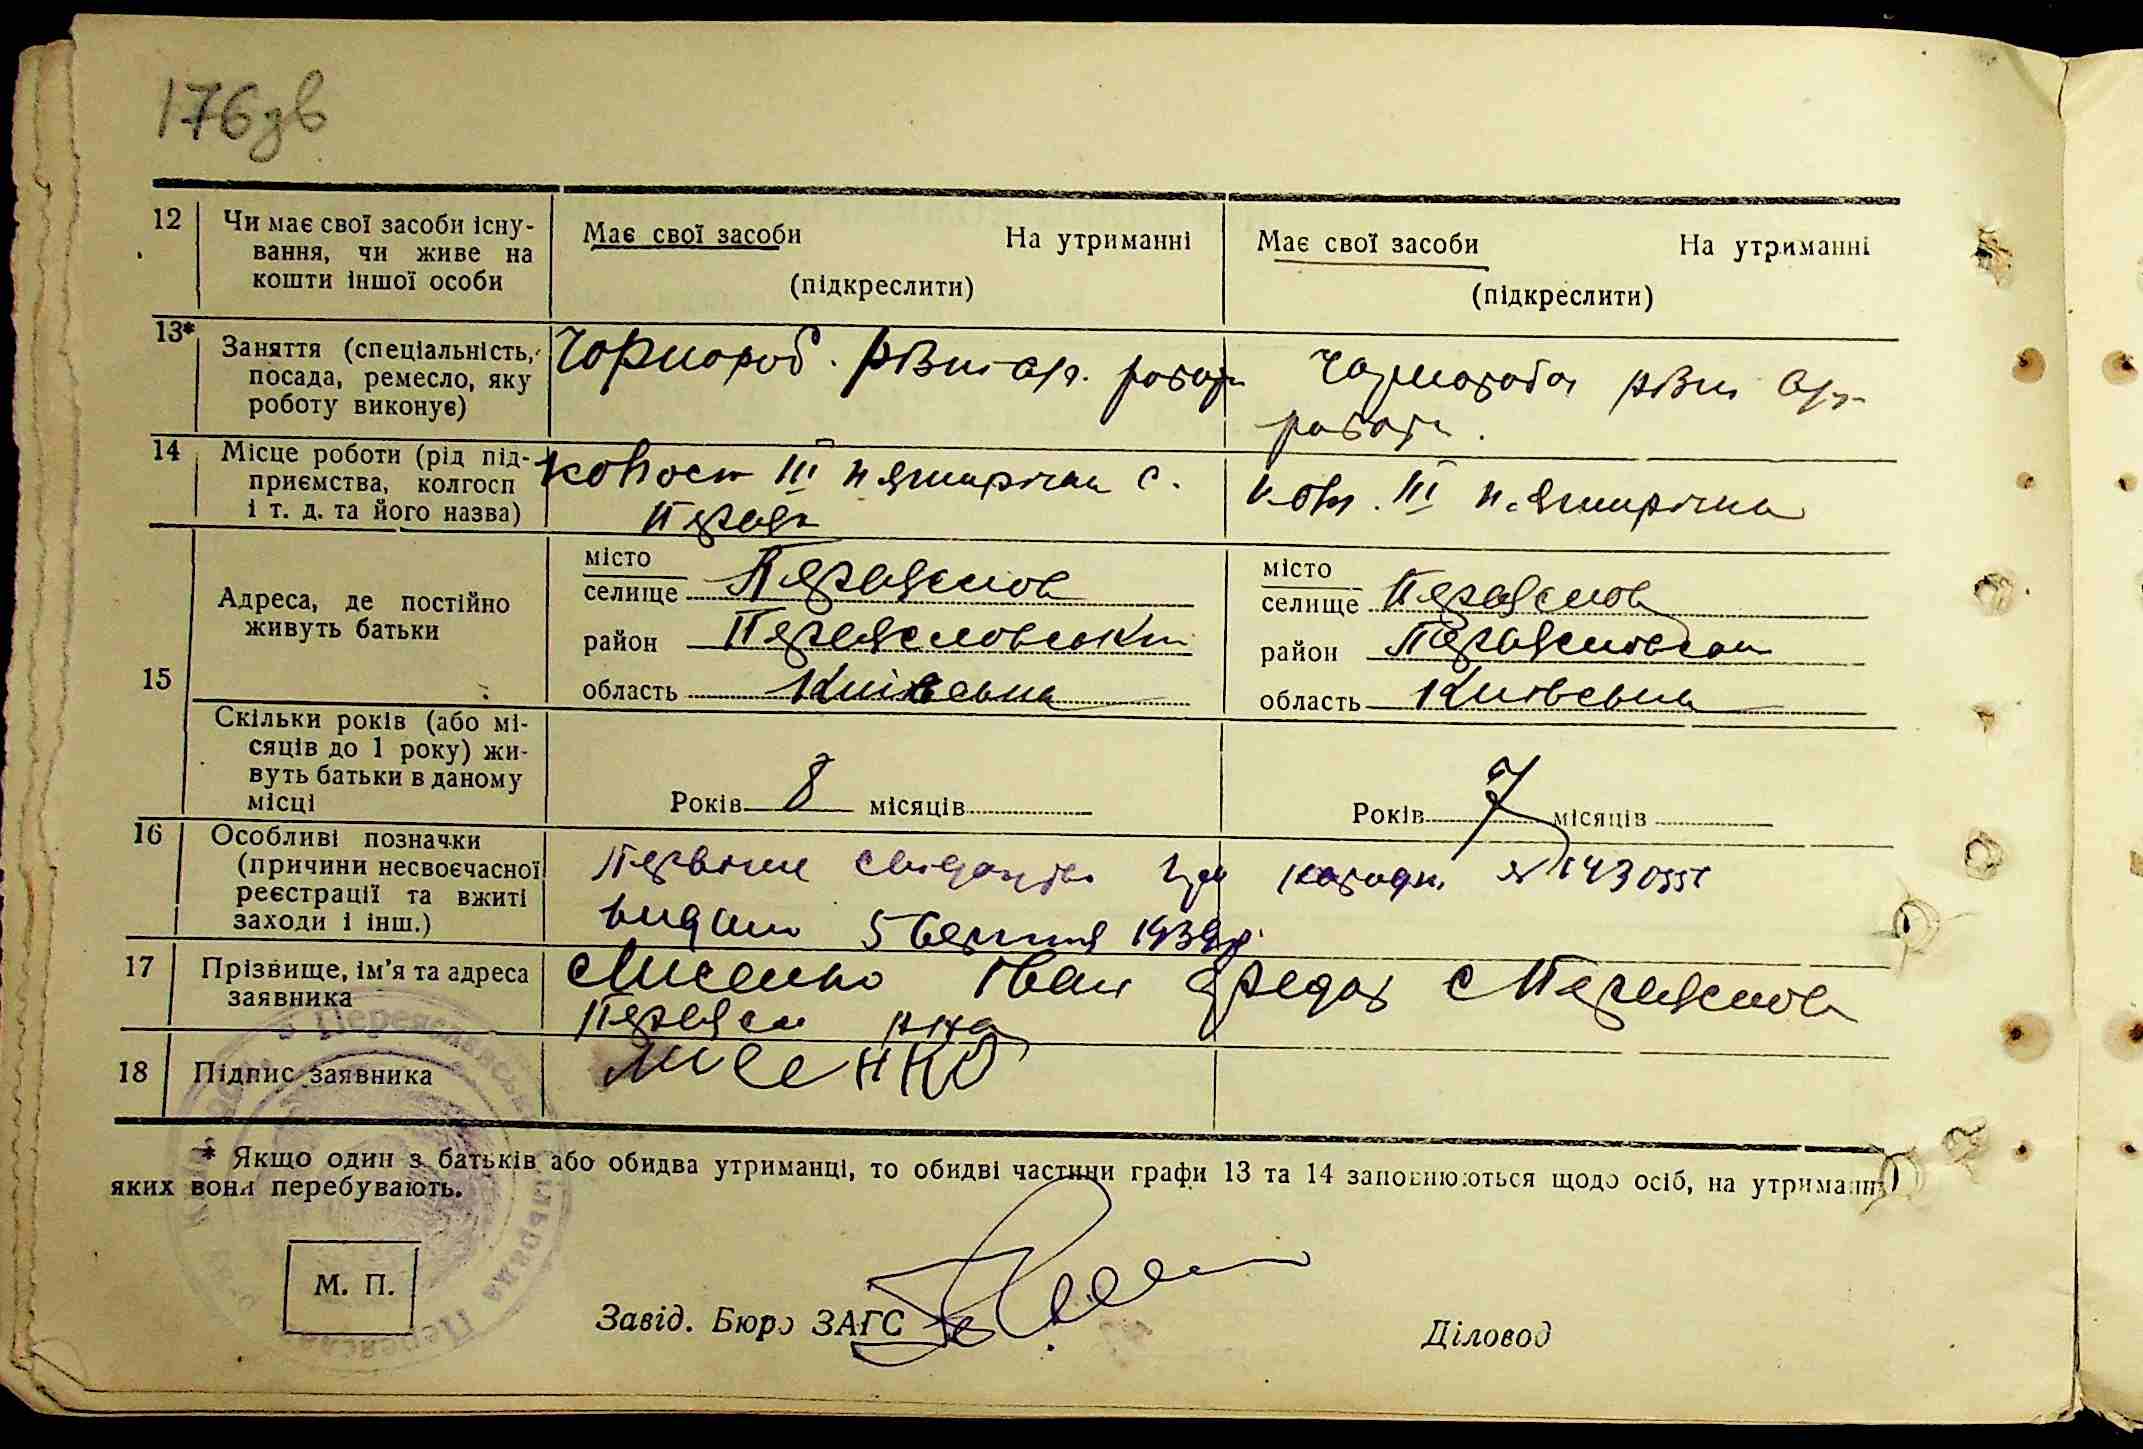 176зв
12 Чи має свої засоби існу- Має свої засоби На утриманні Має свої засоби На утриманні
вання, чи живе на
кошти іншої особи (підкреслити) (підкреслити)
13* Заняття (спеціальність, Чорнороб. різні с/г. роботи Чорнороба різні с/г
посада, ремесло, яку роботи.
роботу виконує)
14 Місце роботи (рід під- колгосп III п'ятирічка с. колг. III п'ятирічка
приємства, колгосп Переяс
і т. д. та його назва)
15 Адреса, де постійно живуть батьки
місто
селище Переяслов
район Переясловський
область Київська
місто
селище Переяслов
район Переясловськ
область Київська
Скільки років (або мі-
сяців до 1 року) жи-
вуть батьки в даному
місці
Років 8 місяців Років 7 місяців
16 Особливі позначки
(причини несвоєчасної
реєстрації та вжиті
заходи і інш.)
Первіне свидоцтво про народж. №
видано 5 серпня 1939р.
17 Прізвище, ім'я та адреса Лисенко Іван с Переяслов
заявника Переясл р-на
18 Підпис заявника Лисенко
* Якщо один з батьків або обидва утриманці, то обидві частини графи 13 та 14 заповнюються щодо осіб, на утриманні
яких вони перебувають.
М. П.
Завід. Бюро ЗАГС Діловод